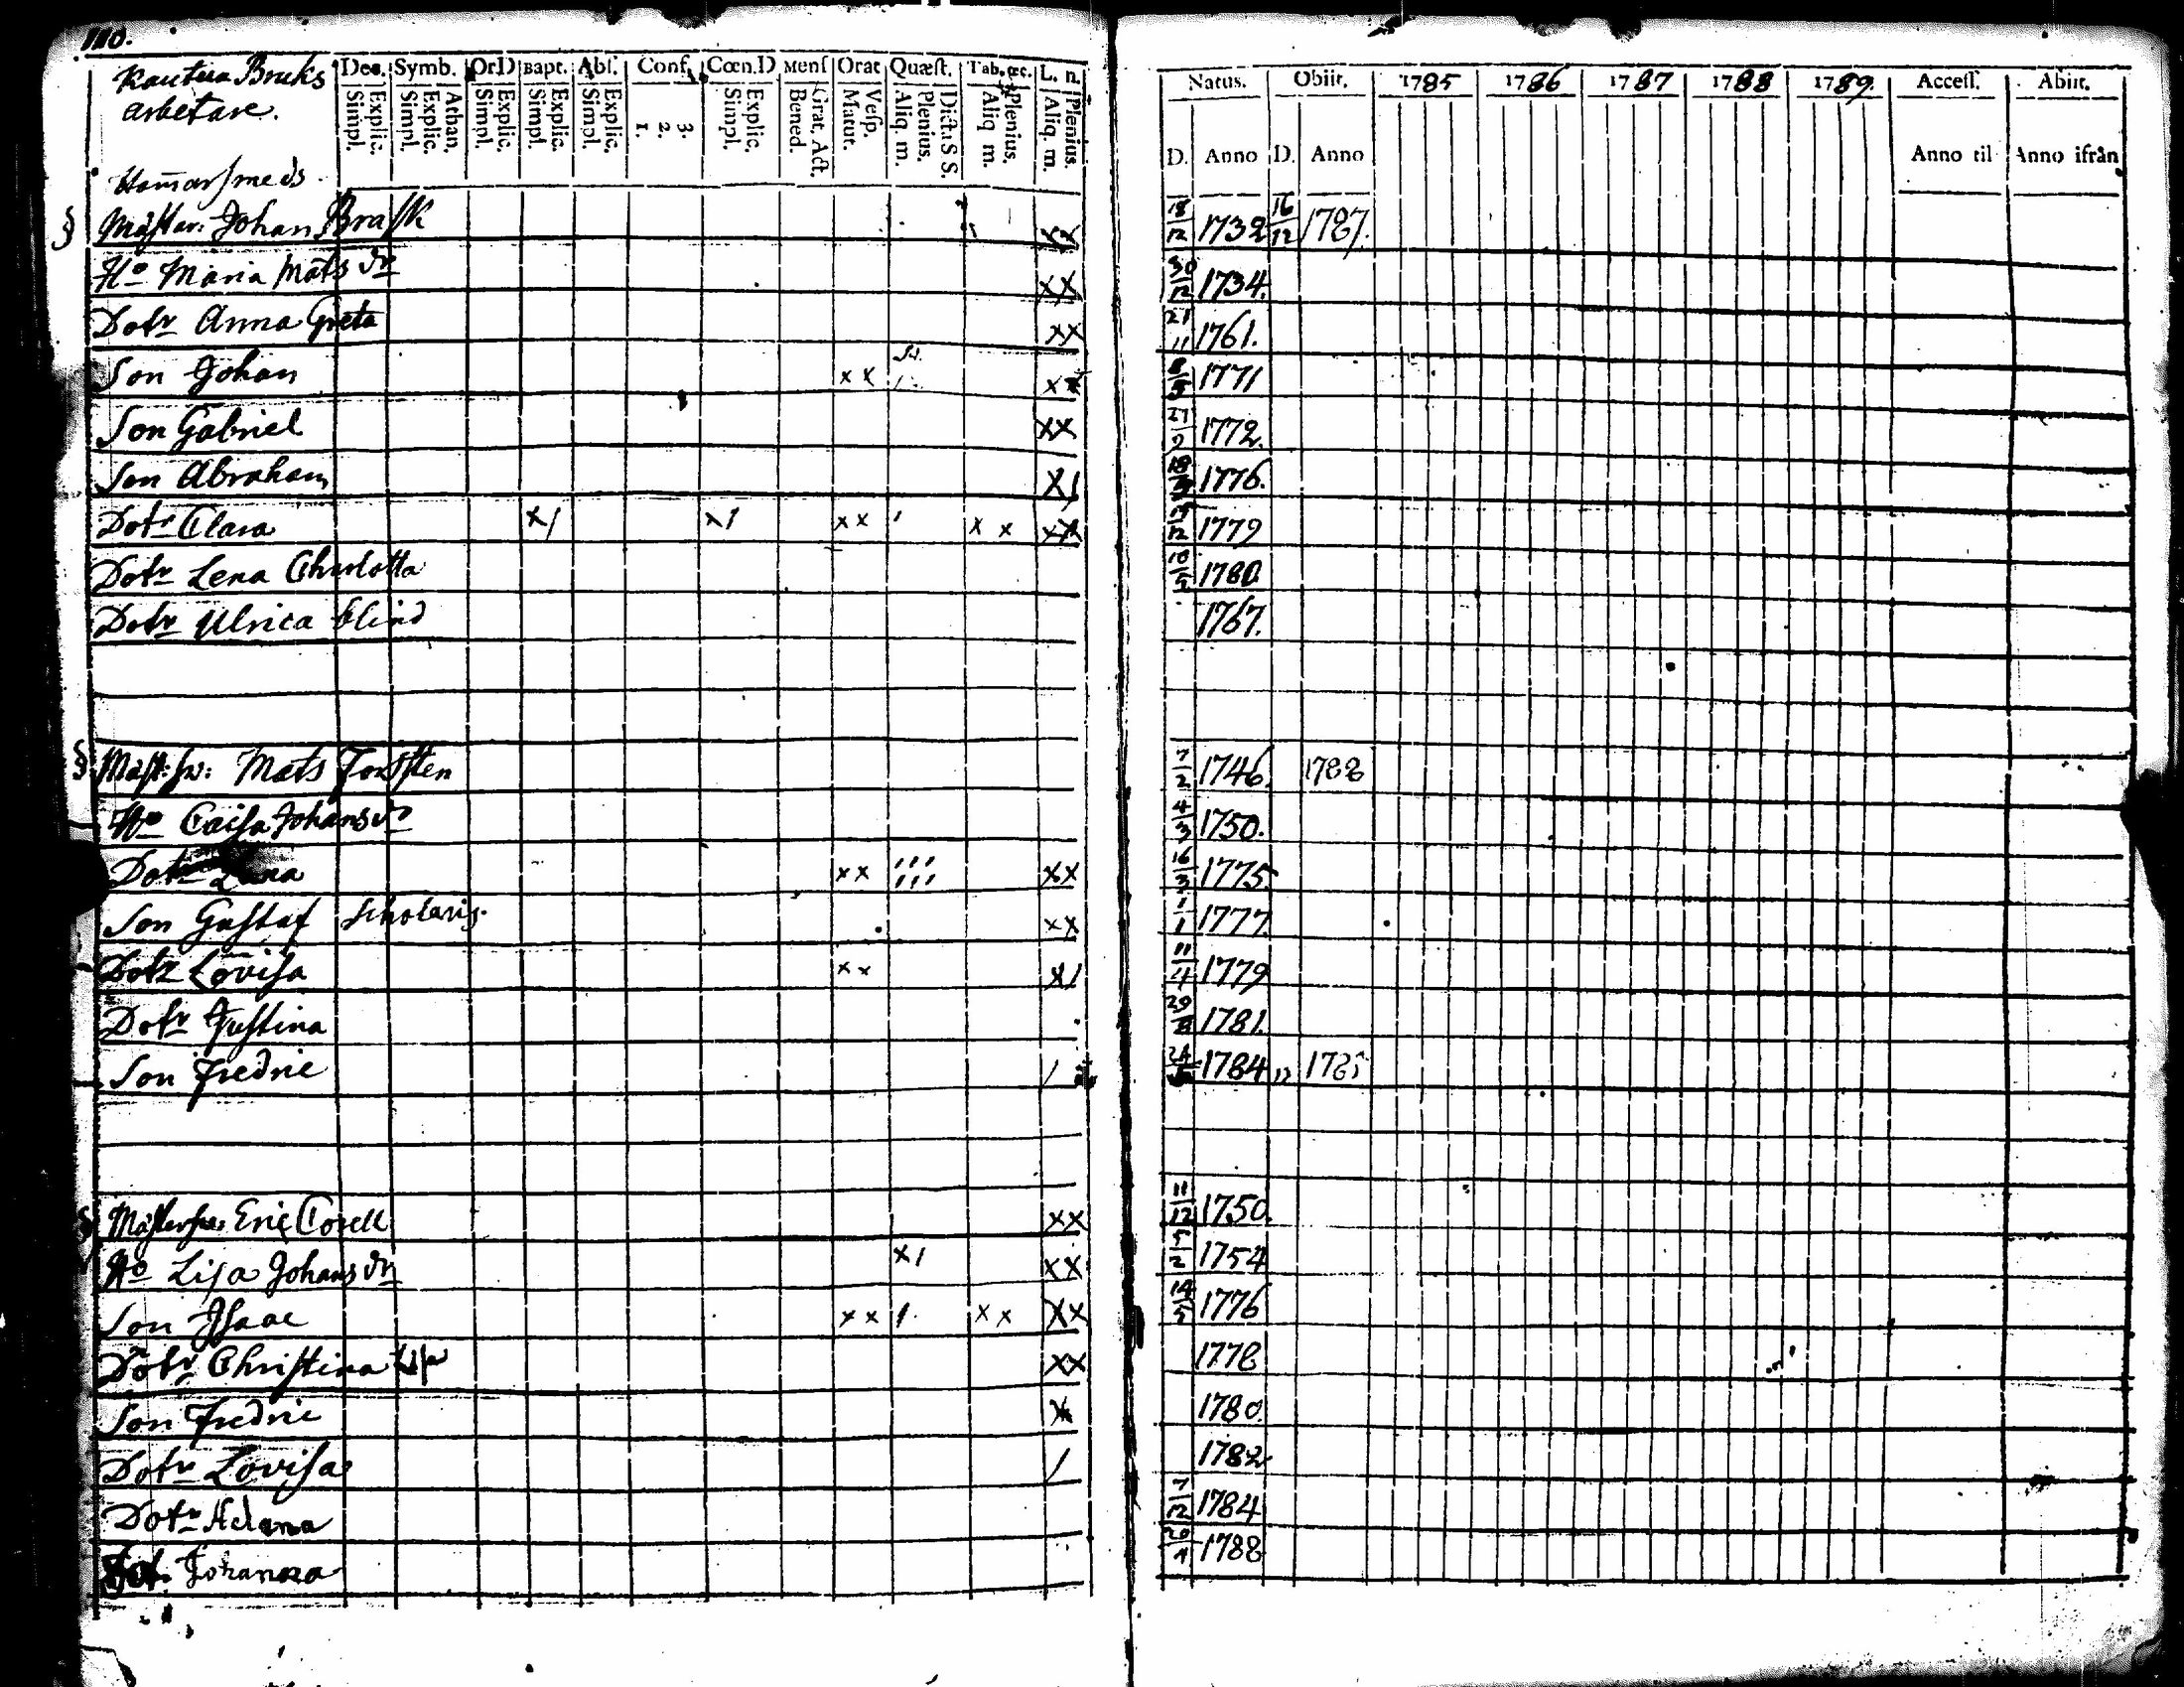 110.
Kautua Bruks Dec. Symb. Or.D Bapt. Abſ. Conf. Cœn.D Menſ Orat Quæſt. Tab. œc. L. n. Natus. Obiit. 1785 1786 1787 1788 1789. Acceſſ. Abiit.
arbetare. Simpl. Explic. Simpl. Explic. Athan. Simpl. Explic. Simpl. Explic. Simpl. Explic. 1. 2. 3. Simpl. Explic. Bened. Grat. Act. Matut. Veſp. Aliq. m. Plenius. Dicta S. S. Aliq m. Plenius. Aliq. m. Plenius. D. Anno D. Anno Anno til Anno ifrån
Ham̄arſmeds
§ Mäſtar: Johan Braſk xx 18/12 1732 16/12 1787.
Ho Maria Mats dr xx 30/12 1734.
Dotr Anna Greta xx 21/11 1761.
Son Johan xx xx 1771
Son Gabriel xx 27/2 1772.
Son Abraham x/ 18 1776.
Dotr Clara x/ x/ xx ' x x xx /12 1779
Dotr Lena Charlotta 10/5 1780.
Dotr Ulrica blind 1767.
§ Mäſt: ſv: Mats Forſſten 7/2 1746. 1788
Ho Caiſa Johans dr 4/3 1750.
Dotr xx xx 16/3 1775.
Son Guſtaf Scholaris. xx 1/1 1777.
Dotr Loviſa xx x/ 11/4 1779
Dotr Juſtina 29/8 1781.
Son Fredric / 24 1784
§ Eric Corell xx 11/12 1750.
Ho Liſa Johans dr x/ xx 5/2 1754
Son Iſaac xx /. xx xx 14/5 1776
Dotr Chriſtina Liſa xx 1778
Son Fredric x 1780.
Dotr Loviſa / 1782
Dotr Helena 7/12 1784
Dot. Johanna 20/4 1788